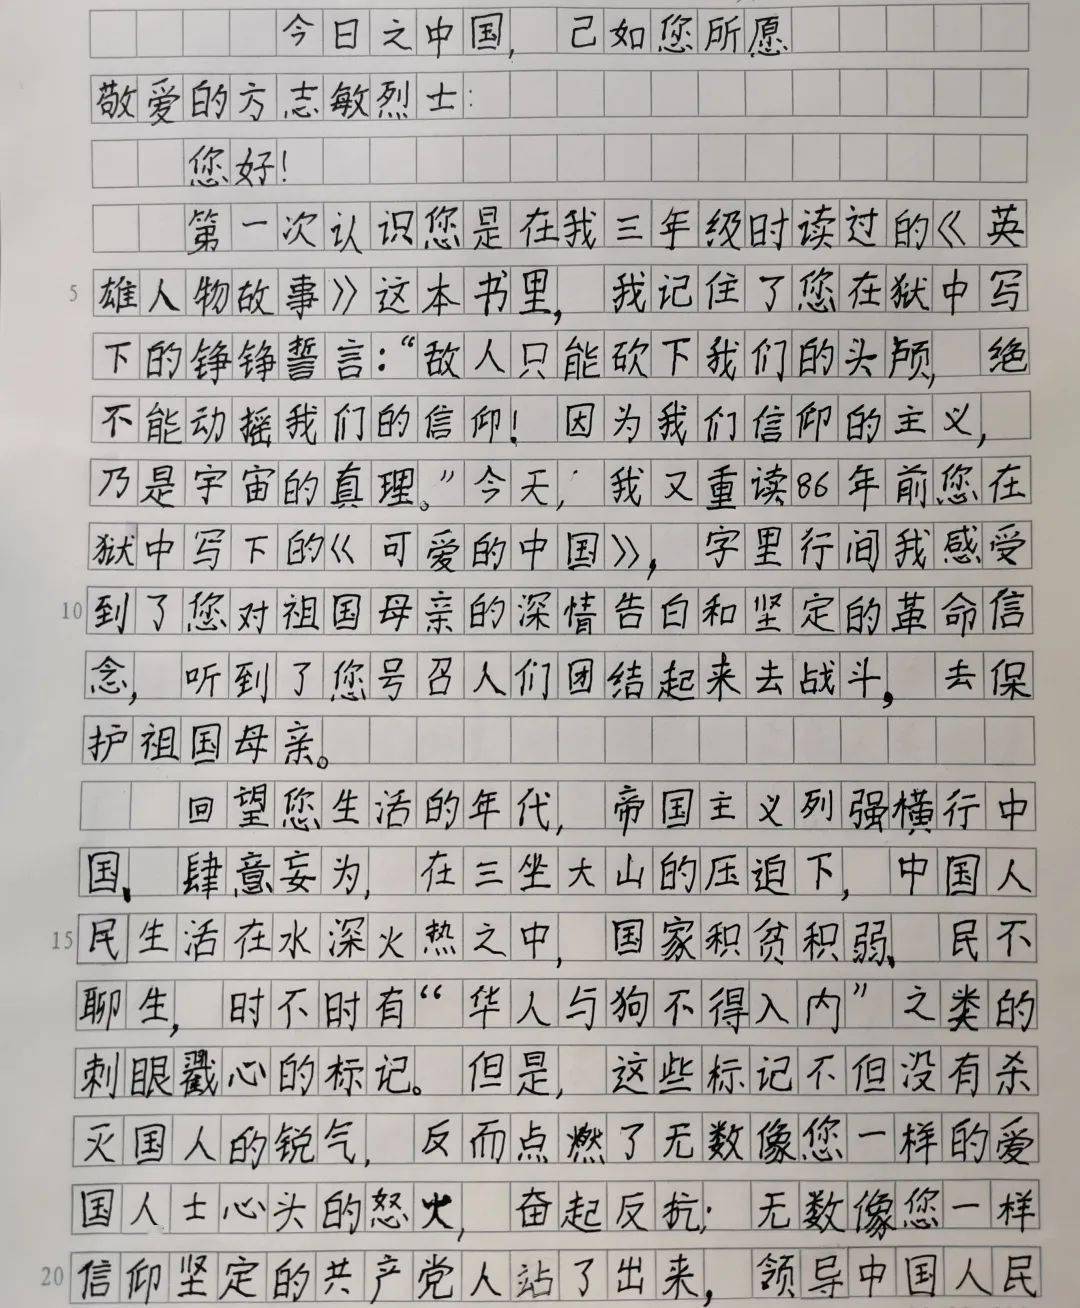 今日之中国，已如您所愿
敬爱的方志敏烈士：
您好！
第一次认识您是在我三年级时读过的《英
5 雄人物故事》这本书里，我记住了您在狱中写
下的铮铮誓言：“敌人只能砍下我们的头颅，绝
不能动摇我们的信仰！因为我们信仰的主义，
乃是宇宙的真理。”今天，我又重读86年前您在
狱中写下的《可爱的中国》，字里行间我感受
10 到了您对祖国母亲的深情告白和坚定的革命信
念，听到了您号召人们团结起来去战斗，去保
护祖国母亲。
回望您生活的年代，帝国主义列强横行中
国、肆意妄为，在三坐大山的压迫下，中国人
15 民生活在水深火热之中，国家积贫积弱、民不
聊生，时不时有“华人与狗不得入内”之类的
刺眼戳心的标记。但是，这些标记不但没有杀
灭国人的锐气，反而点燃了无数像您一样的爱
国人士心头的怒火，奋起反抗；无数像您一样
20 信仰坚定的共产党人站了出来，领导中国人民